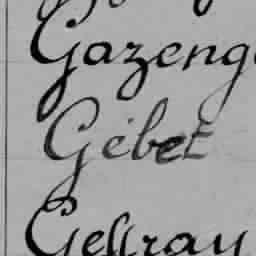 Gazeng
Gébet
Geffray